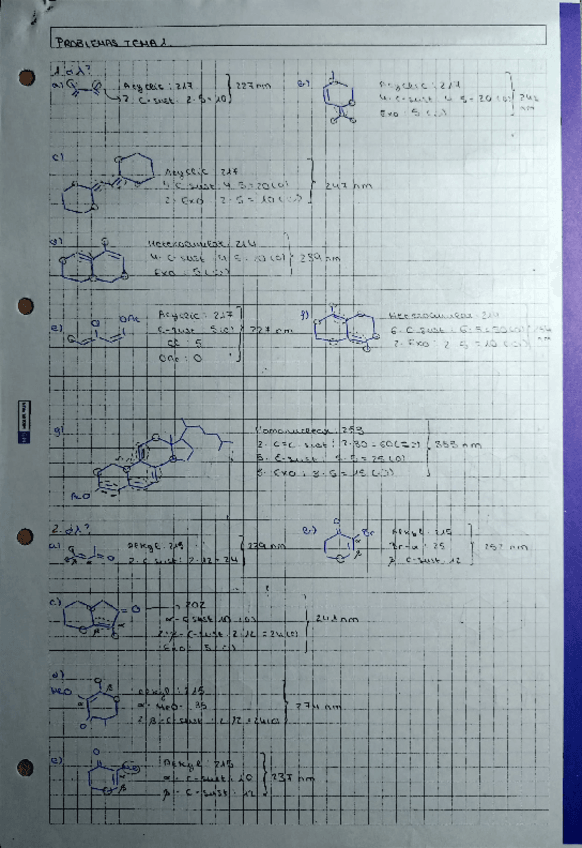 PROBLEMAS TEMA 1.
1. ¿λ?
a) Acyclic: 217
2. C-sust: 2·5=10
227 nm
Acyclic: 217
4. C-sust 4·5=20
Exo: 5
242 nm
c)
Acyclic: 217
4. C-sust 4·5=20
2. Exo: 2·5=10
247 nm
d)
Heteroanular: 214
4. C-sust
Exo: 5
239 nm
e) OAc
Acyclic: 217
C-sust: 5
5
OAc: 0
227 nm
f)
Heteroanular: 214
6. C-sust: 6·5=30
2. Exo: 2·5=10
g)
AcO
Homoanular: 253
2. C=C-sust: 2·30=60
5. C-sust: 5·5=25
3. Exo: 3·5=15
353 nm
2. ¿λ?
a) O
Alkyl: 215
2. C-sust: 2·12=24
239 nm
O Br
Alkyl: 215
Br-α: 25
β C-sust 12
252 nm
c) =O
202
α-C-sust 10
2 β-C-sust: 2·12=24
Exo: 5
241 nm
d)
MeO α β O
Alkyl: 215
α-MeO: 35
2 β-C-sust: 2·12=24
274 nm
e) O α β
Alkyl: 215
α-C-sust: 10
β-C-sust: 12
237 nm